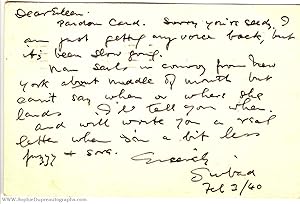 Dear Eileen
Pardon Card. Sorry you're seedy, I
am just getting my voice back, but
it's been slow going.
Nan sails in convoy from New
York about middle of month but
can't say when or where she
lands I'll tell you when.
and will write you a real
letter when I'm a bit less
fuzzy & sore.
Sincerely
Feb 2/40
www.SophieDupreautographs.com